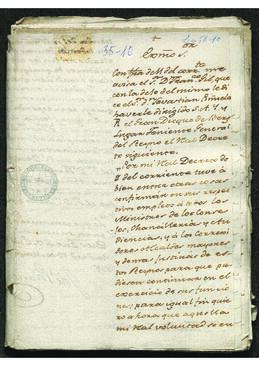 35-10
Exmo. Sr.
Con fha de 11 del corrte. me
avisa el Sr. Dn. Franco. Gil que
con la de 10 del mismo le di
ce el Sr. Dn. Sevastian Piñuela
haverle dirigido S. A. I. y
R. el Gran Duque de Berg
Lugar Teniente General
del Reyno el Real Decre
to siguiente.
Por mi Real Decreto de
del corriente tuve á
bien entre otras cosas
confirmar en sus respec
tivos empleos á todos los
Ministros de los Conse
jos, Chancillerias, y Au
diencias, y á los Corregi
dores Alcaldes mayores
y demas Justicias de es
tos Reynos para que pu
diesen continuar en el
exercicio de sus funcio
nes; para igual fin quie
ro ahora que aquella
mi Real voluntad se en